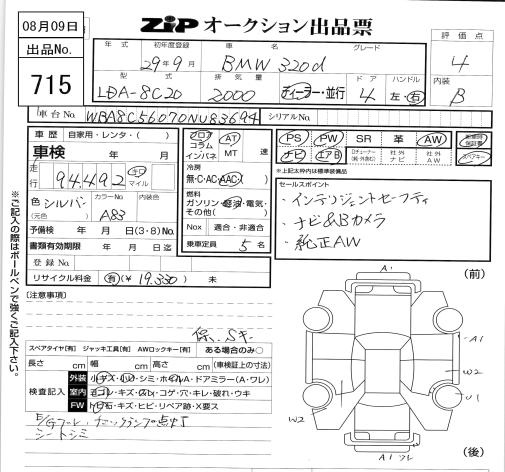 08月09日
出品No.
715
ZiP オークション出品票
年式
初年度登録
車名
グレード
評価点
29年9月
BMW 320d
4
型式
排気量
ドア
ハンドル
内装
LDA-8C20
2000
ディーラー・並行
4
左・右
B
車台No.
WBA8C56070NU83694
シリアルNo.
車歴
自家用・レンタ・( )
車検
年 月
走行
94,492
キロ
マイル
色
シルバー
(元色)
カラーNo
A83
内装色
予備検 年 月 日(3・8)No.
書類有効期限 年 月 日迄
登録No.
リサイクル料金
有(¥ 19,330) 未
フロア
コラム
インパネ
AT
MT
速
冷房
無・C・AC・AAC
燃料
ガソリン・軽油・電気・
その他( )
Nox
適合・非適合
乗車定員
5名
PS
PW
SR
革
AW
ナビ
エアB
社外
ナビ
社外
AW
※上記太枠内は標準装備品
セールスポイント
・インテリジェントセーフティ
・ナビ&Bカメラ
・純正AW
※ご記入の際はボールペンで強くご記入下さい。
(注意事項)
スペアタイヤ[有] ジャッキ工具[有] AWロックキー[有] ある場合のみ○
長さ cm 幅 cm 高さ cm (車検証上の寸法)
検査記入
外装
小キズ・小凹・シミ・ホイルA・ドアミラー(A・ワレ)
室内
ヨゴレ・キズ・スレ・コゲ・穴・キレ・破れ・ウキ
FW
トビ石・キズ・ヒビ・リペア跡・X要ス
シートシミ
(前)
A1
A1
W2
U1
W2
A1 ワレ
(後)